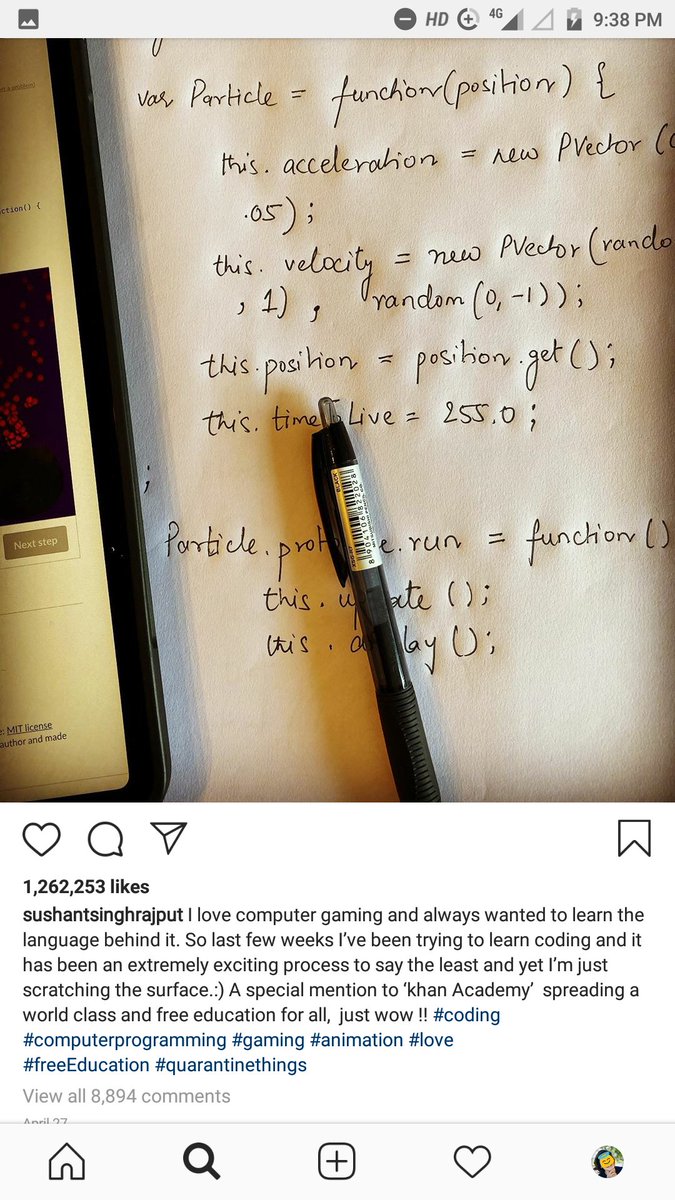 HD 4G 9:38 PM
var Particle = function(position) {
this. acceleration = new PVector (
.05);
this. velocity = new PVector(rando
, 1) , random (0, -1));
this.position = position.get();
this. time Live = 255.0 ;
;
Particle. .run = function ()
this. ();
this . ();
ction() {
Next step
MIT license
author and made
8904106822028
1,262,253 likes
sushantsinghrajput I love computer gaming and always wanted to learn the
language behind it. So last few weeks I’ve been trying to learn coding and it
has been an extremely exciting process to say the least and yet I’m just
scratching the surface.:) A special mention to ‘khan Academy’ spreading a
world class and free education for all, just wow !! #coding
#computerprogramming #gaming #animation #love
#freeEducation #quarantinethings
View all 8,894 comments
April 27